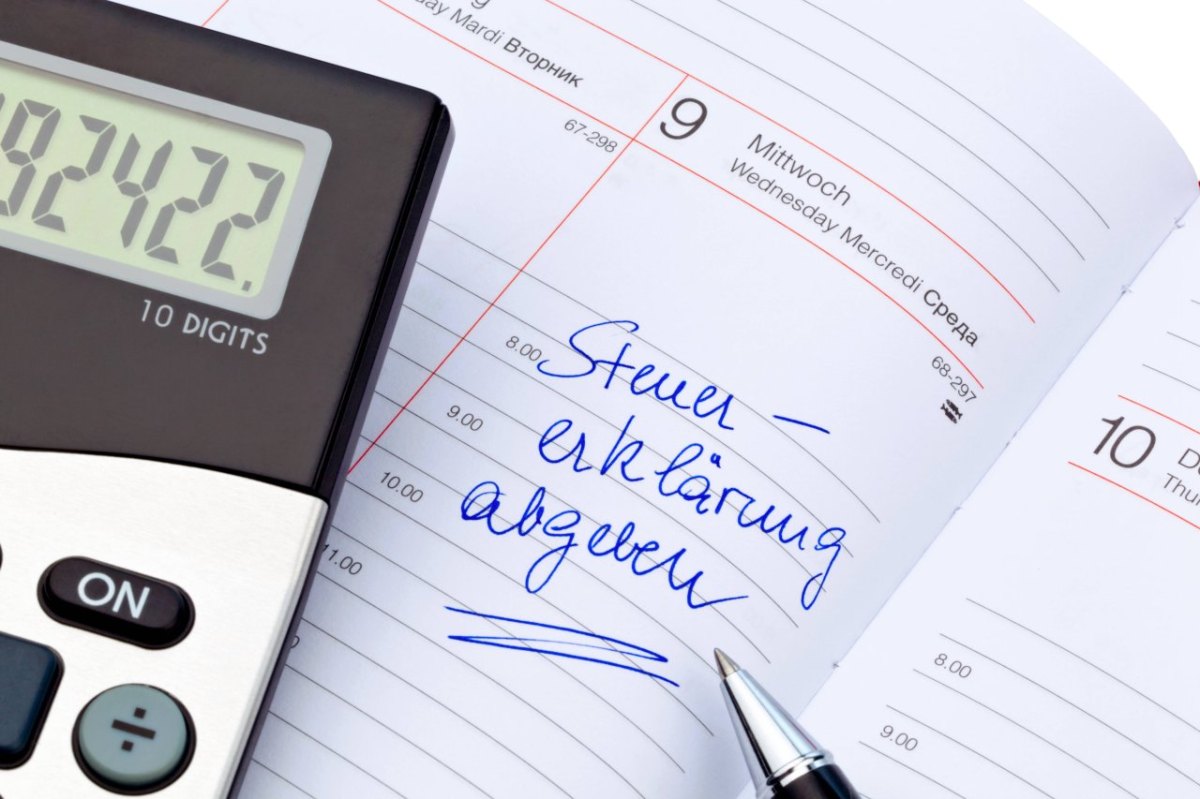 ay Mardi Вторник
67-298
9 Mittwoch
Wednesday Mercredi Среда
68-297
8.00
9.00
10.00
11.00
Steuer–
erklärung
abgeben
92422.
10 DIGITS
ON
÷
10
8.00
9.00